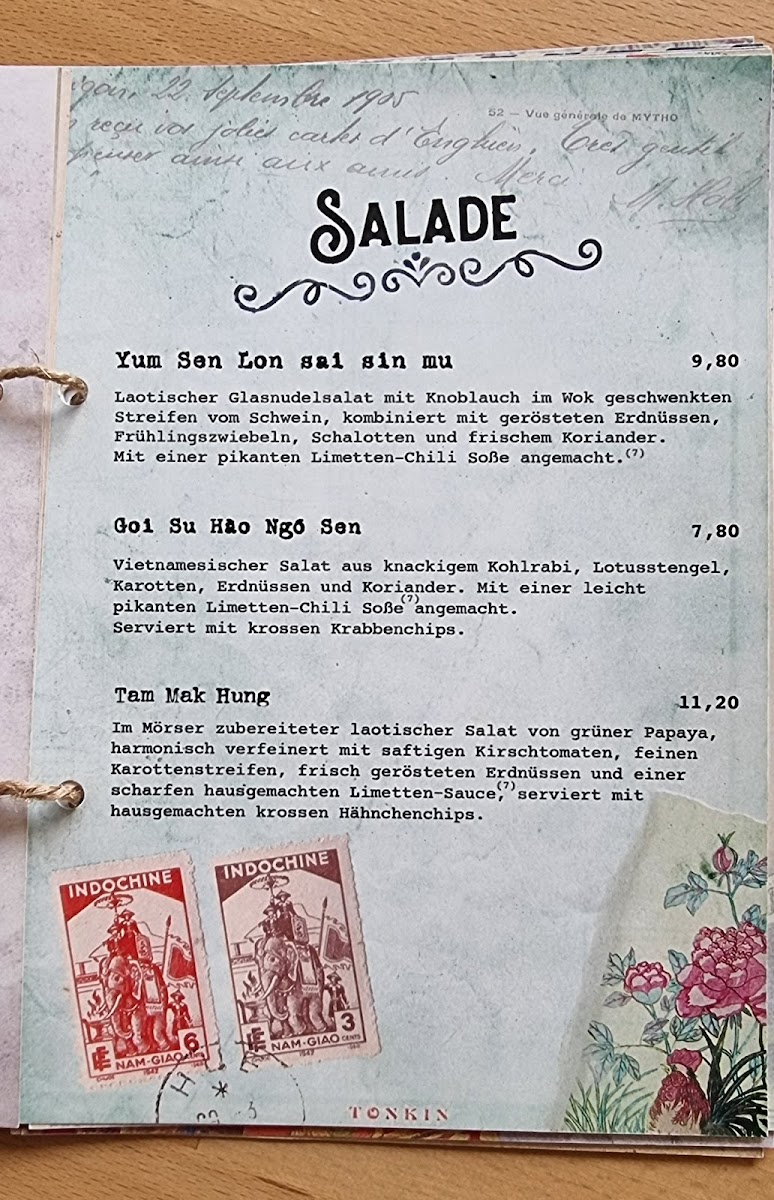 22 Septembre 1905
52 — Vue générale de MYTHO
reçu vos jolies cartes d'Enghien. Très gentil
penser ainsi aux amis. Merci
SALADE
Yum Sen Lon sai sin mu 9,80
Laotischer Glasnudelsalat mit Knoblauch im Wok geschwenkten
Streifen vom Schwein, kombiniert mit gerösteten Erdnüssen,
Frühlingszwiebeln, Schalotten und frischem Koriander.
Mit einer pikanten Limetten-Chili Soße angemacht.(7)
Goi Su Hào Ngó Sen 7,80
Vietnamesischer Salat aus knackigem Kohlrabi, Lotusstengel,
Karotten, Erdnüssen und Koriander. Mit einer leicht
pikanten Limetten-Chili Soße(7)angemacht.
Serviert mit krossen Krabbenchips.
Tam Mak Hung 11,20
Im Mörser zubereiteter laotischer Salat von grüner Papaya,
harmonisch verfeinert mit saftigen Kirschtomaten, feinen
Karottenstreifen, frisch gerösteten Erdnüssen und einer
scharfen hausgemachten Limetten-Sauce,(7) serviert mit
hausgemachten krossen Hähnchenchips.
INDOCHINE
6
NAM-GIAO
INDOCHINE
3
NAM-GIAO CENTS
TONKIN